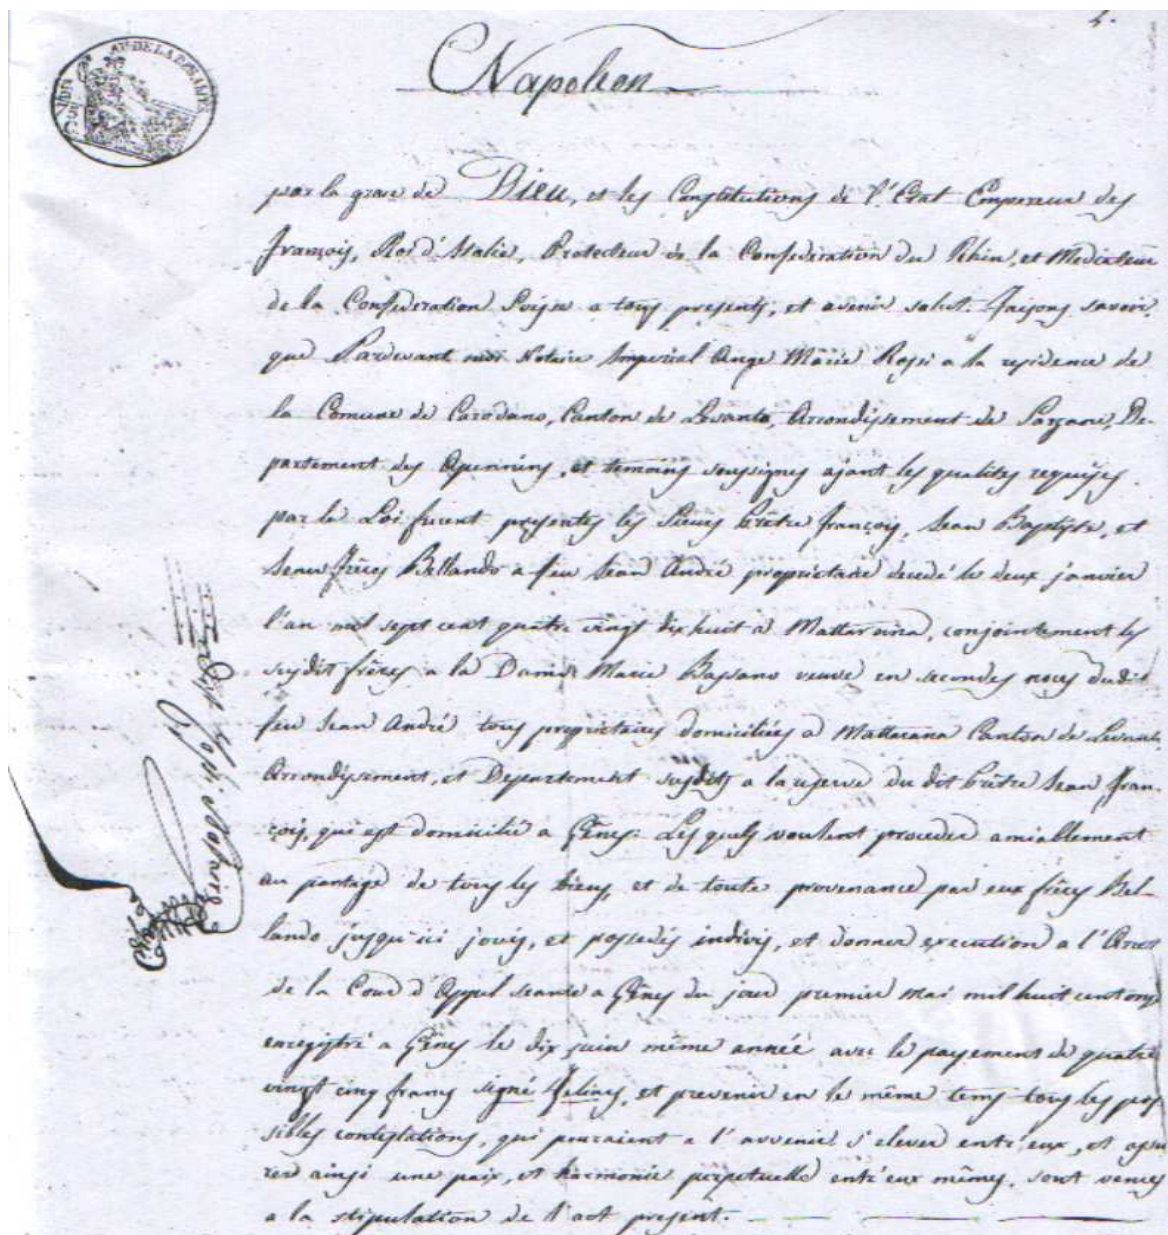 Napoleon
par la grace de Dieu, et les Constitutions de l'Etat Empereur des
François, Roi d'Italie, Protecteur de la Confederation du Rhin, et Mediateur
de la Confederation Suisse a tous presents, et avenir salut. Faisons savoir,
que Pardevant moi Notaire Imperial Ange Marie Rossi a la residence de
la Comune de Carodano, Canton de Levanto, Arrondissement de Sarzane, De-
partement des Apennins, et temoins soussignes ajant les qualites requises
par la Loi furent presentes les Sieurs Prêtre François, Jean Baptiste, et
Jean frères Bellando a feu Jean André proprietaire decedé le deux janvier
l'an mil sept cent quatre vingt dix huit a Mattarana, conjointement les
susdit frères a la Dame Marie Bassano veuve en secondes noces dudit
feu Jean André tous proprietaires domiciliées a Mattarana Canton de Levanto
Arrondissement, et Departement susdits a la reserve du dit Prêtre Jean Fran-
çois, qui est domicilié a Gênes. Les quels voulent proceder amiablement
au partage de tous les biens, et de toute provenance par eux frères Bel-
lando jusqu'ici jouis, et possedés indivis, et donner execution a l'Arret
de la Cour d'Appel seante a Gênes du jour premier mai mil huit cent onze
enregistré a Gênes le dix juin même année avec le payement de quatre
vingt cinq francs signé, et prevenir en le même tems tous les pos
sibles contestations, qui pouraient a l'avvenir s'elever entr'eux, et assu
rer ainsi une paix, et harmonie perpetuelle entr'eux mêmes, sont venus
a la stipulation de l'act present.